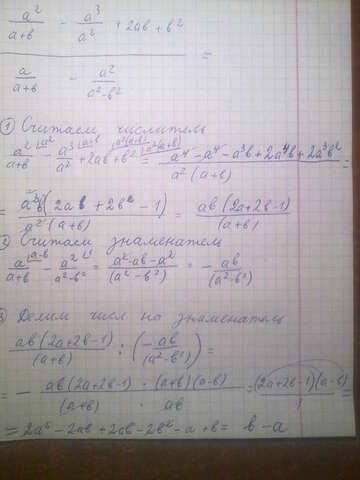 a²/(a+b) - a³/a² + 2ab + b²
=
a/(a+b) - a²/(a²-b²)
① Считаем числитель
a²/(a+b) - a³/a² + 2ab + b² = (a⁴ - a⁴ - a³b + 2a⁴b + 2a³b²)/(a²(a+b)) =
= a³b(2ab + 2b² - 1)/(a²(a+b)) = ab(2a+2b-1)/(a+b)
Считаем знаменатель
a/(a+b) - a²/(a²-b²) = (a²-ab-a²)/(a²-b²) = - ab/(a²-b²)
Делим числ на знаменатель
ab(2a+2b-1)/(a+b) : (-ab/(a²-b²)) =
= - ab(2a+2b-1)/(a+b) · (a+b)(a-b)/ab = (2a+2b-1)(a-b)/1 =
= 2a² - 2ab + 2ab - 2b² - a + b = b - a